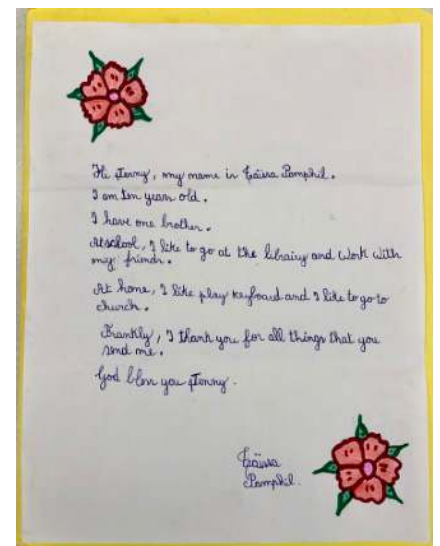 Hi Jenny, my name is Loïssa Pamphil.
I am ten years old.
I have one brother.
At school, I like to go at the library and work with
my friends.
At home, I like play keyboard and I like to go to
church.
Frankly, I thank you for all things that you
send me.
God bless you Jenny.
Pamphil.